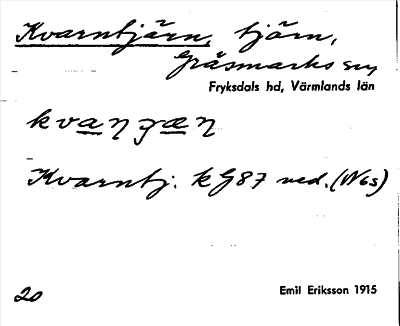 Kvarntjärn, tjärn,
Gräsmarks sn
Fryksdals hd, Värmlands län
Kvarntj. k G87 ved. (N6s)
20
Emil Eriksson 1915